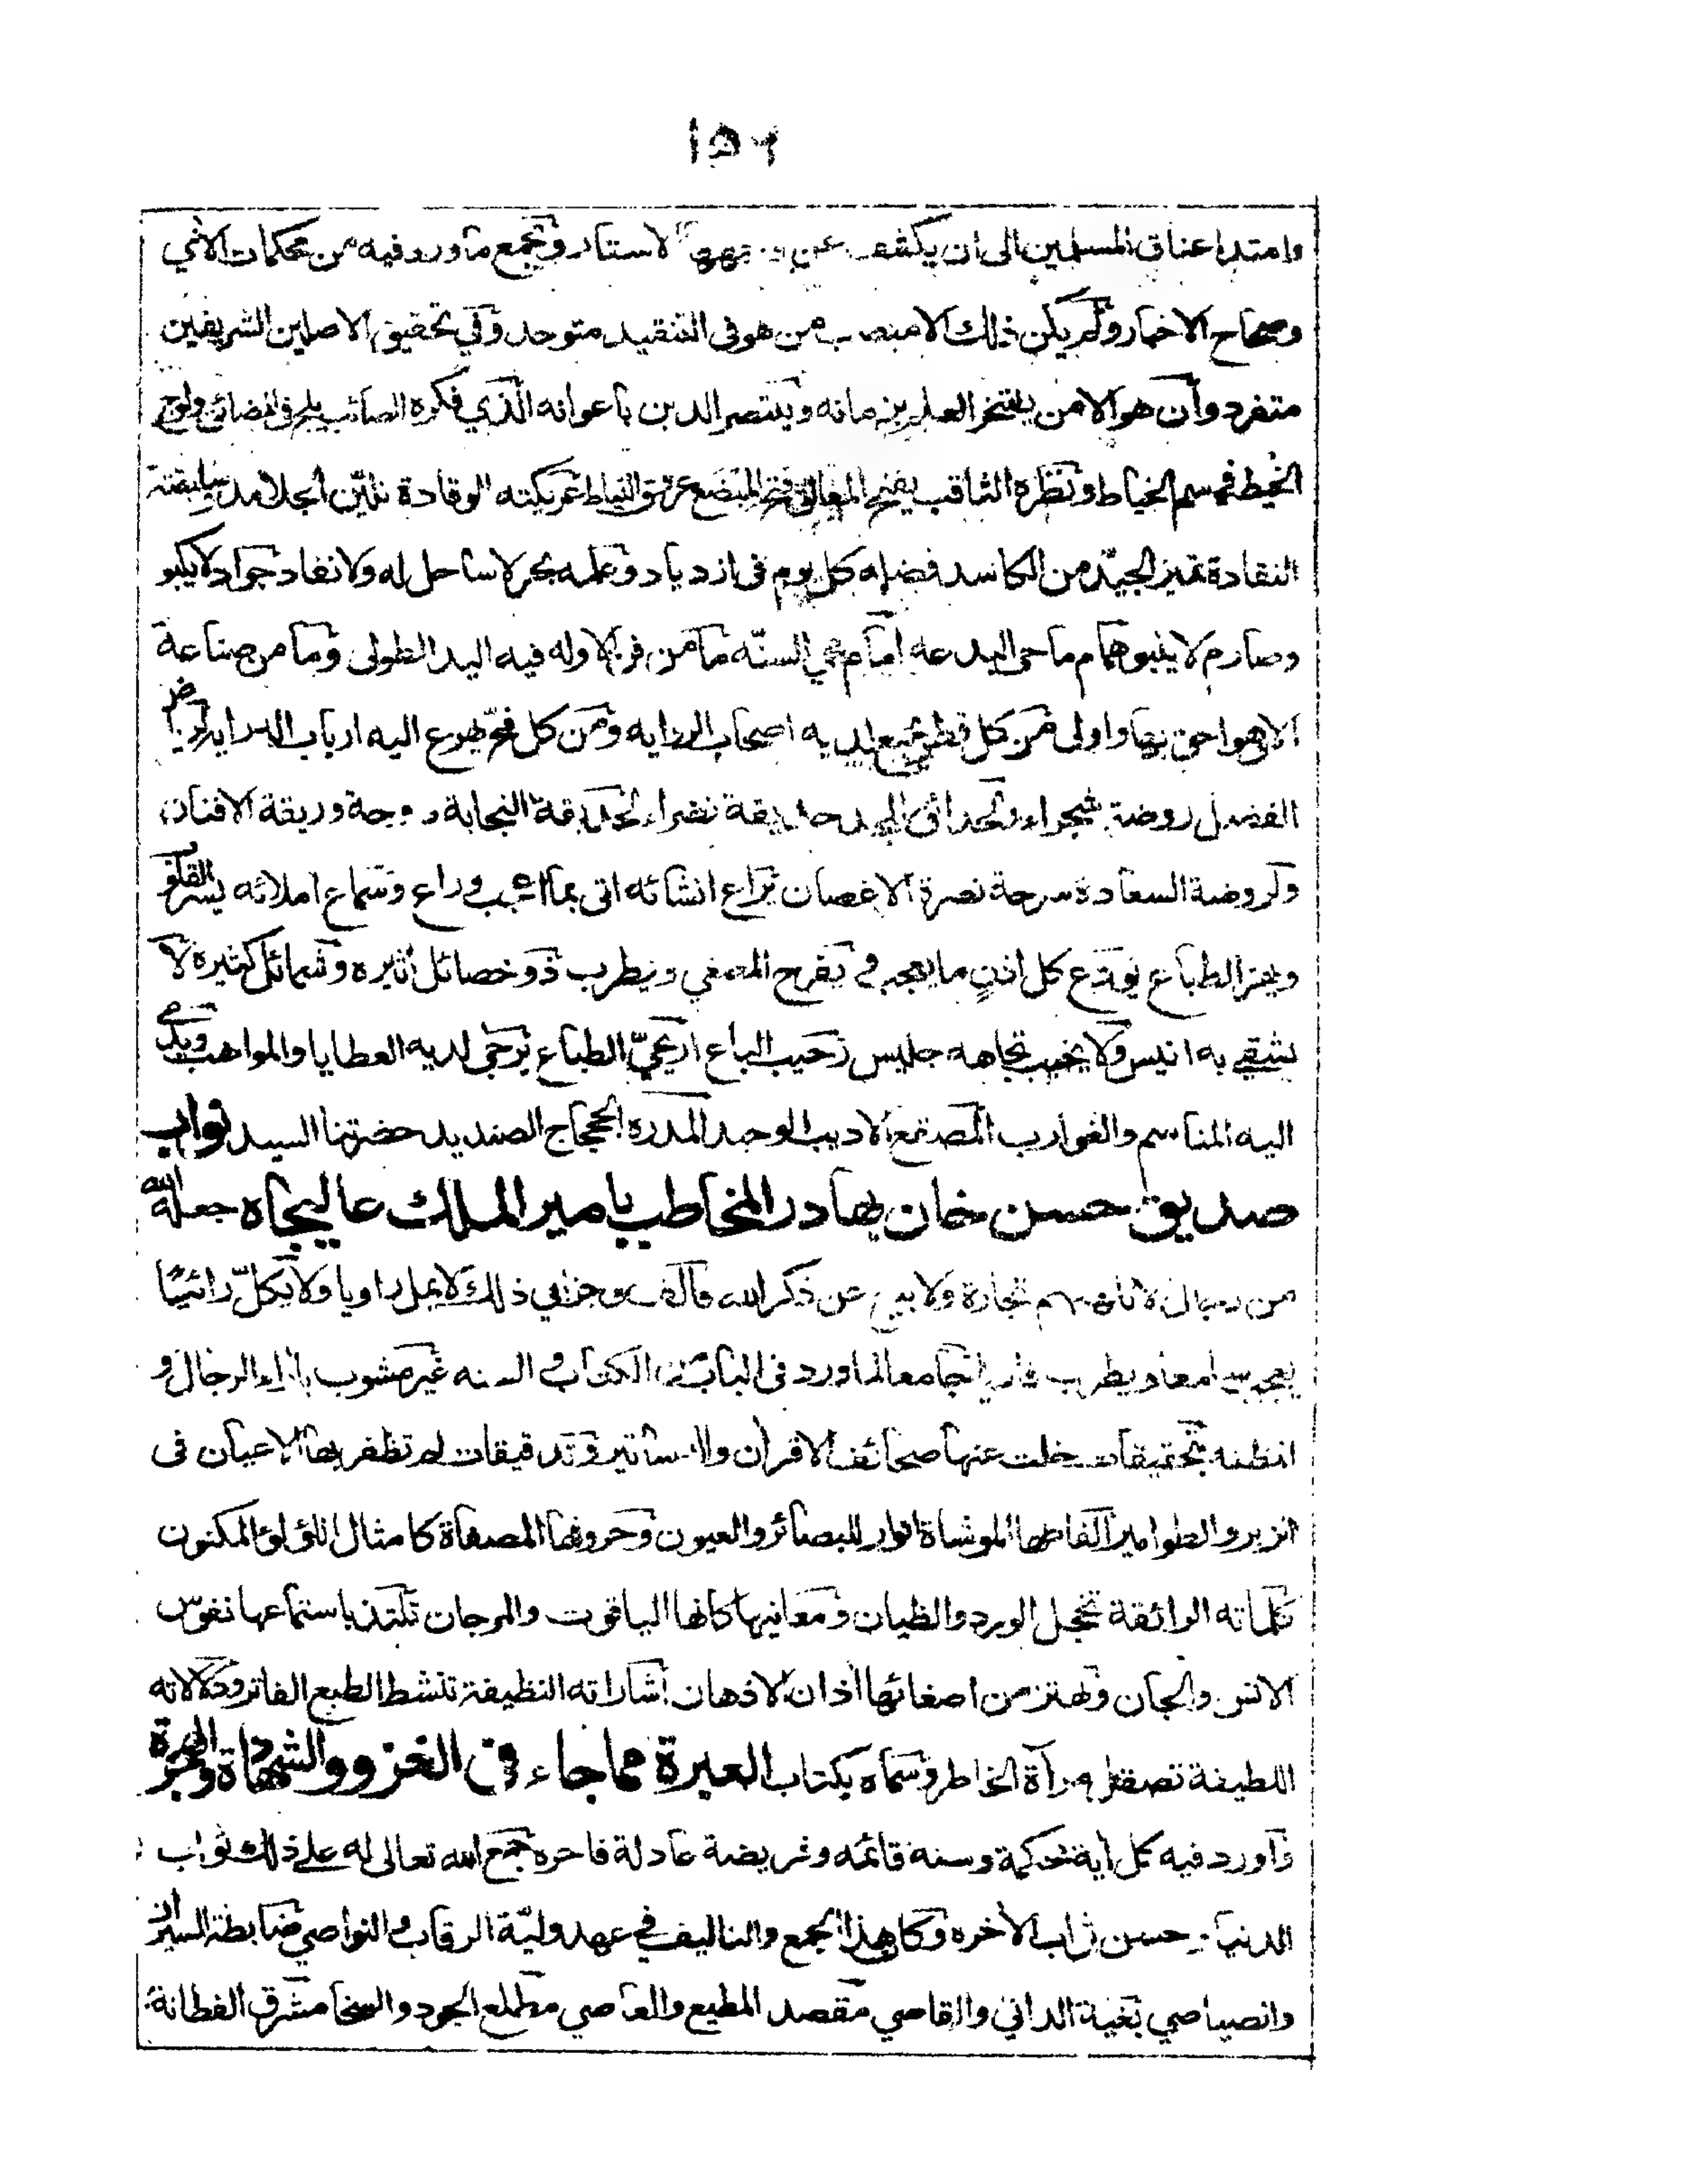 ١٥٦
وامتد اعناق المسلمين الى ان يكشف عن الاستار ويجمع ما ورد فيه من محكمات الآي
وصحاح الاخبار ولم يكن ذلك الا منصب من هو في التنقيد متوحد وفي تحقيق الاصلين الشريفين
متفرد وأن هو الا من يفتخر العلم بزمانه وينتصر الدين باعوانه الذي فكره الصائب يلج في المضائق ولوج
الخيط في سم الخياط ونظره الثاقب يفتح المغالق فتح المبضع عرق النياط عريكته الوقادة تليّن الجلامد سليقته
النقادة تميز الجيّد من الكاسد فضله كل يوم في ازدياد وعلمه بحر لا ساحل له ولا نفاد جواد لا يكبو
وصارم لا ينبو همام ماحي البدعه امام محي السنّه ما من فن الا وله فيه اليد الطولى وما من صناعة
الا هو احق بها واولى من كل قطر لديه اصحاب الروايه ومن كل فج يهرع اليه ارباب الدرايه لرياض
الفضل روضة شجراء ولحدائق المجد حديقة نضراء لحديقة النجابة دوجة وريقة الافنان
ولروضة السعادة سرحة نضرة الاغصان يراع انشائه اتى بما اعجب وراع وسماع املائه يسر القلوب
ويهز الطباع يودع كل اذنٍ ما يعجبه في يفرح المصغي ويطرب ذو خصائل أثيره وشمائل كثيرة لا
يشقى به انيس ولا يخيب تجاهه جليس رحيب الباع اريحيّ الطباع ترجى لديه العطايا والمواهب وتدمى
اليه المناسم والغوارب المصقع الاديب الوحيد المدره الحجاج الصنديد حضرتنا السيد نواب
صديق حسن خان بهادر المخاطب بامير الملك عاليجاه جعله الله
من رجال لا تلهيهم تجارة ولا بيع عن ذكر الله فألف جزا في ذلك لا يمل راويا ولا يكلّ رائيًا
يعجب سامعا ويطرب جامعا لما ورد في الباب من الكتاب والسنه غير مشوب باراء الرجال و
انظفه بتحقيقات خلت عنها صحائف الاقران والاساتير وتدقيقات لم تظفر بها الاعيان في
الزبر والطوامير الفاظها الموشاة انوار للبصائر والعيون وحروفها المصفاة كامثال اللؤلؤ المكنون
كلماته الرائقة تخجل الورد والظيان ومعانيها كانها الياقوت والمرجان تلتذ باستماعها نفوس
الانس والجان وتهتز من اصغائها أذان الاذهان اشاراته النظيفة تنشط الطبع الفاتر ودلالاته
اللطيفة تصقل مرآة الخاطر وسماه بكتاب العبرة مما جاء في الغزو والشهادة والهجرة
واورد فيه كل أية محكمة وسنه قائمه وفريضة عادلة فاخره جمع الله تعالى له على ذلك ثواب
الدنيا وحسن ثواب الأخره وكان هذا الجمع والتاليف في عهد وليّة الرقاب والنواصي ضابطة السير ان
وانصياصي بغية الداني والقاصي مقصد المطيع والعاصي مطلع الجود والسخا مشرق الفطانة